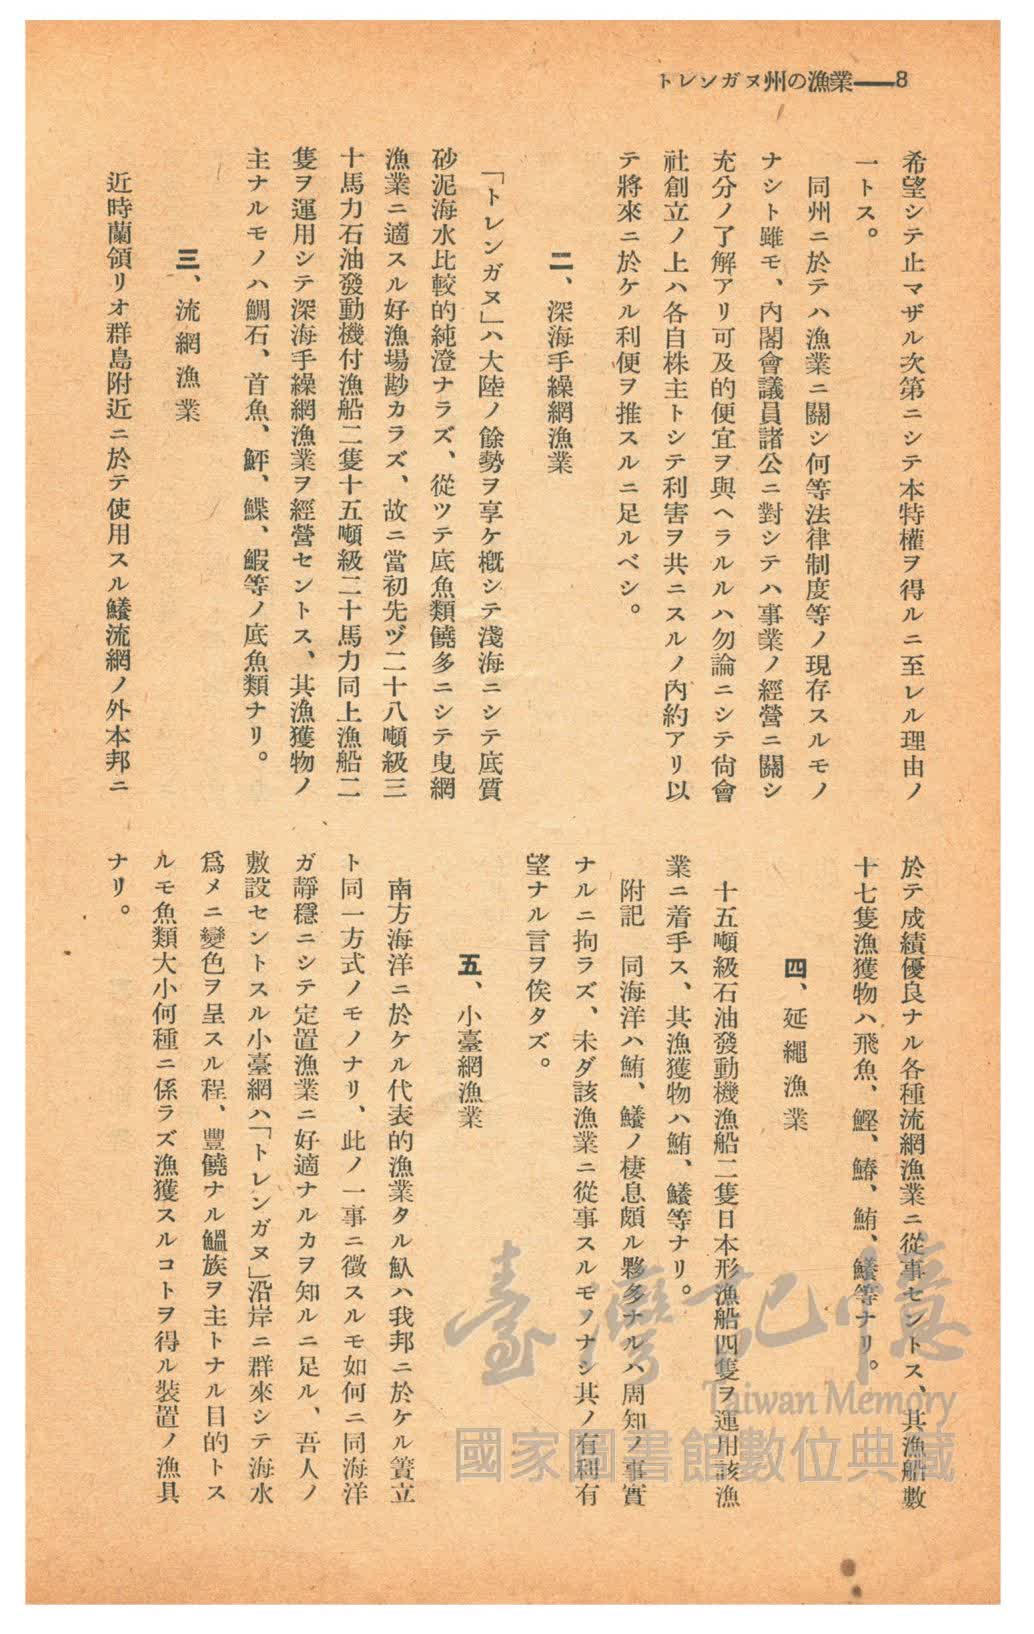 トレンガヌ州の漁業――8
希望シテ止マザル次第ニシテ本特權ヲ得ルニ至レル理由ノ
一トス。
同州ニ於テハ漁業ニ關シ何等法律制度等ノ現存スルモノ
ナシト雖モ、內閣會議員諸公ニ對シテハ事業ノ經營ニ關シ
充分ノ了解アリ可及的便宜ヲ與ヘラルルハ勿論ニシテ尙會
社創立ノ上ハ各自株主トシテ利害ヲ共ニスルノ內約アリ以
テ將來ニ於ケル利便ヲ推スルニ足ルベシ。
二、深海手繰網漁業
「トレンガヌ」ハ大陸ノ餘勢ヲ享ケ槪シテ淺海ニシテ底質
砂泥海水比較的純澄ナラズ、從ツテ底魚類饒多ニシテ曳網
漁業ニ適スル好漁場尠カラズ、故ニ當初先ヅ二十八噸級三
十馬力石油發動機付漁船二隻十五噸級二十馬力同上漁船二
隻ヲ運用シテ深海手繰網漁業ヲ經營セントス、其漁獲物ノ
主ナルモノハ鯛石、首魚、鮃、鰈、鰕等ノ底魚類ナリ。
三、流網漁業
近時蘭領リオ群島附近ニ於テ使用スル鱶流網ノ外本邦ニ
於テ成績優良ナル各種流網漁業ニ從事セントス、其漁船數
十七隻漁獲物ハ飛魚、鰹、鰆、鮪、鱶等ナリ。
四、延繩漁業
十五噸級石油發動機漁船二隻日本形漁船四隻ヲ運用該漁
業ニ着手ス、其漁獲物ハ鮪、鱶等ナリ。
附記 同海洋ハ鮪、鱶ノ棲息頗ル夥多ナルハ周知ノ事實
ナルニ拘ラズ、未ダ該漁業ニ從事スルモノナシ其ノ有利有
望ナル言ヲ俟タズ。
五、小臺網漁業
南方海洋ニ於ケル代表的漁業タル魞ハ我邦ニ於ケル簀立
ト同一方式ノモノナリ、此ノ一事ニ徵スルモ如何ニ同海洋
ガ靜穩ニシテ定置漁業ニ好適ナルカヲ知ルニ足ル、吾人ノ
敷設セントスル小臺網ハ「トレンガヌ」沿岸ニ群來シテ海水
爲メニ變色ヲ呈スル程、豐饒ナル鰮族ヲ主トナル目的トス
ルモ魚類大小何種ニ係ラズ漁獲スルコトヲ得ル裝置ノ漁具
ナリ。
臺灣記憶
Taiwan Memory
國家圖書館數位典藏